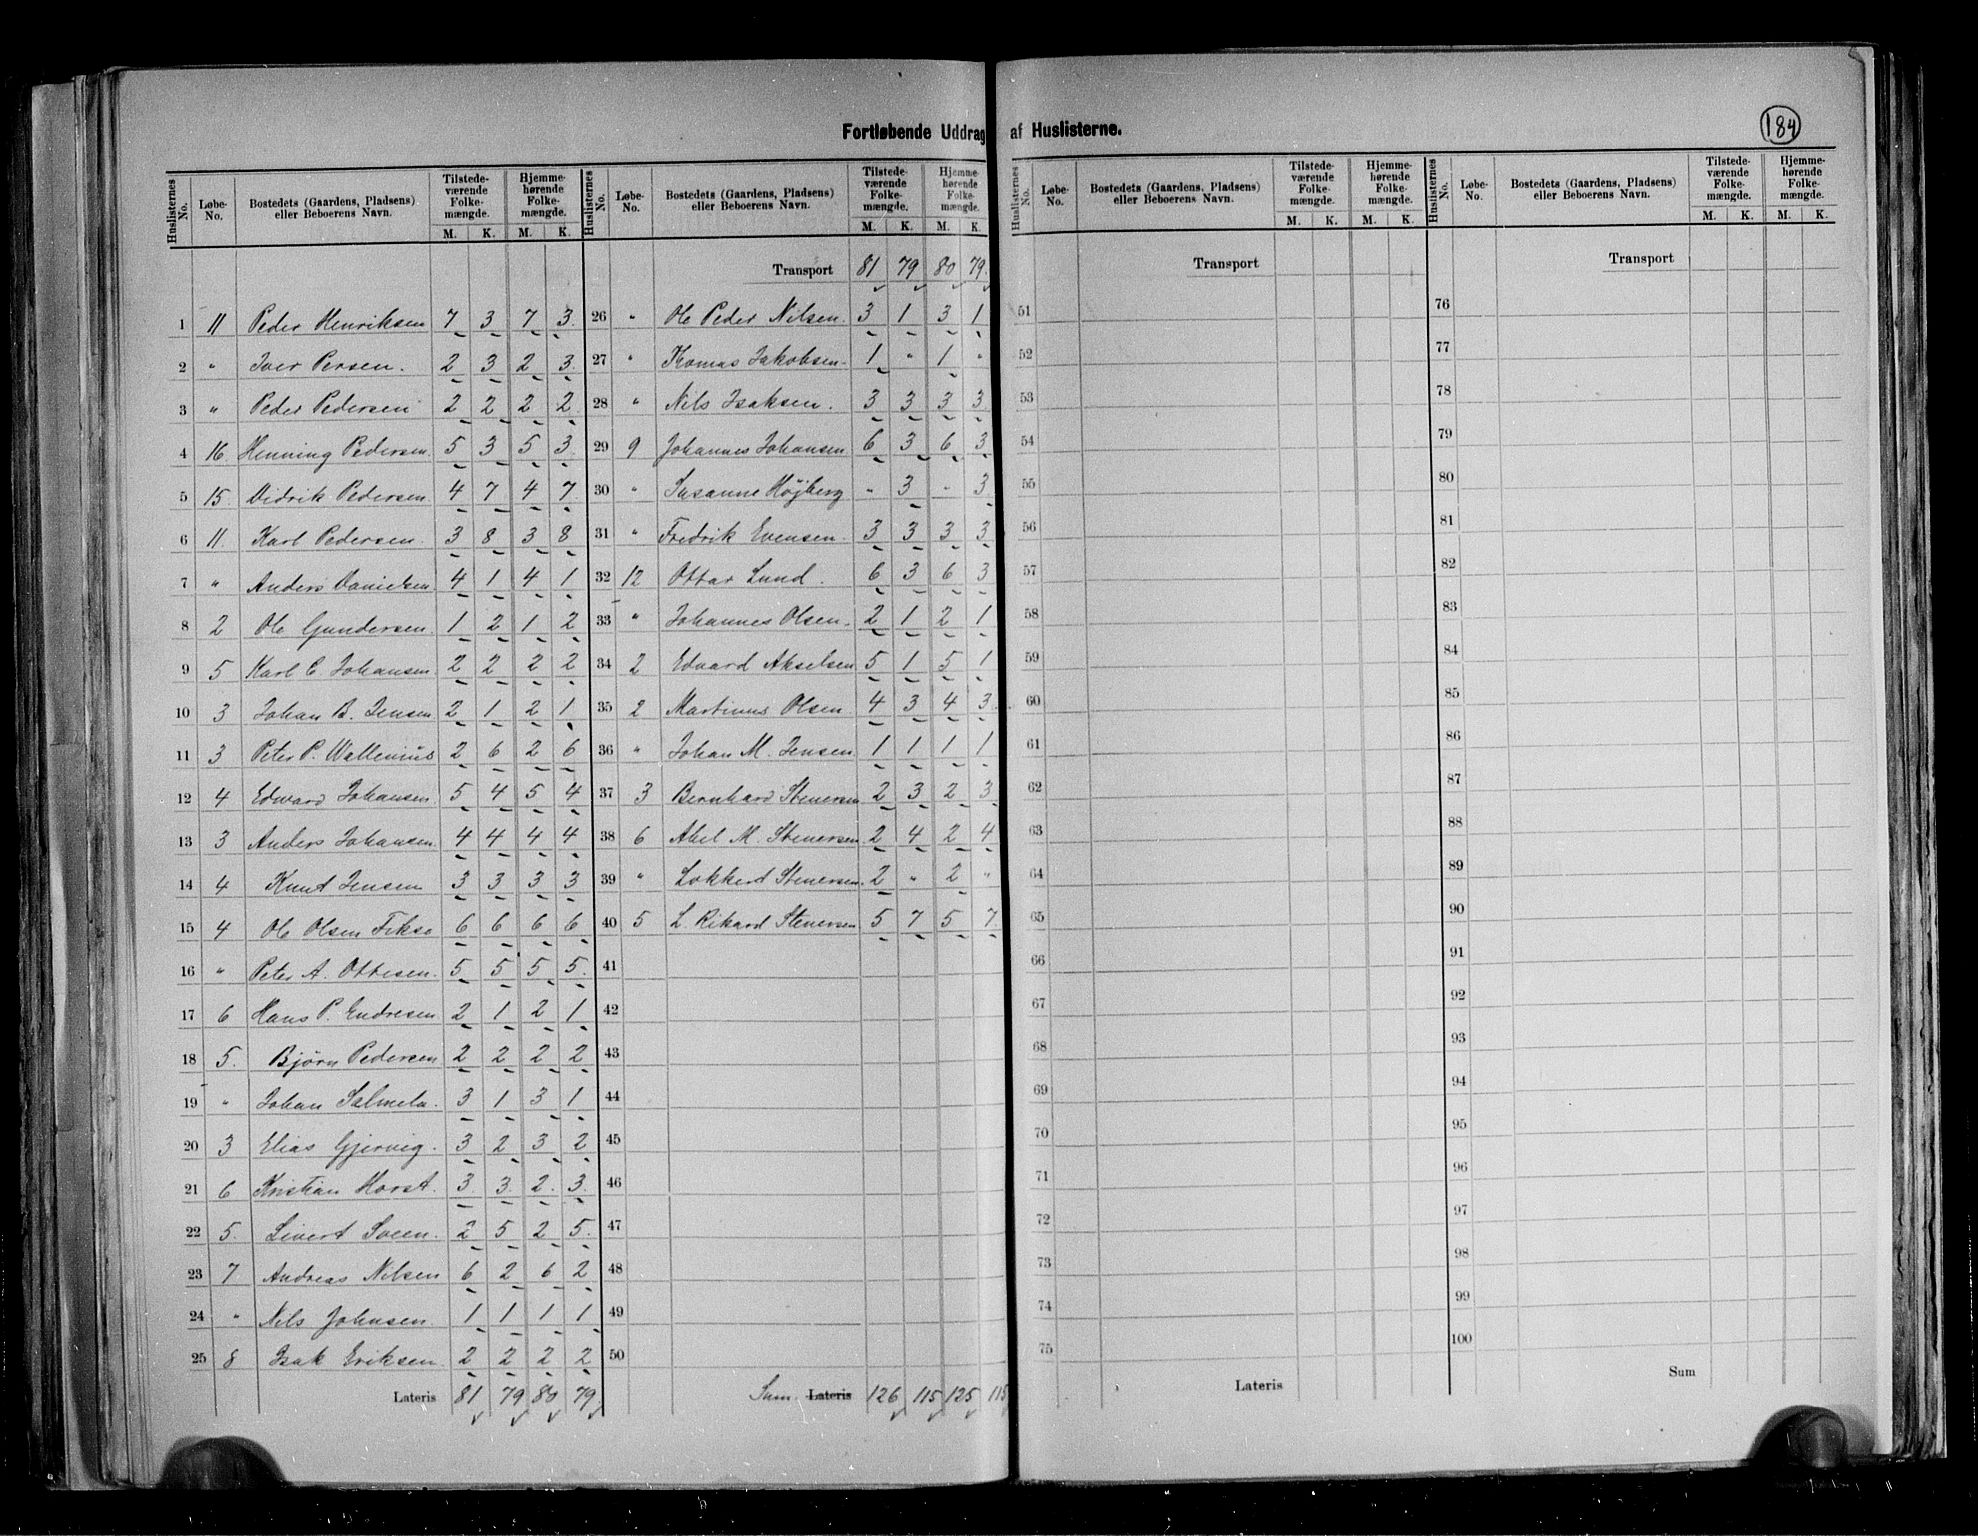 Fortløbende Uddrag af Huslisterne.
184
Huslisternes No. | Løbe-No. | Bostedets (Gaardens, Pladsens) eller Beboerens Navn. | Tilstedeværende Folkemængde. M. K. | Hjemmehørende Folkemængde. M. K.
1 11 Peder Henriksen 7 3 7 3.
2 " Iver Persen. 2 3 2 3.
3 " Peder Pedersen 2 2 2 2.
4 16 Henning Pedersen. 5 3 5 3.
5 15. Didrik Pedersen. 4 7 4 7
6 11 Karl Pedersen. 3 8 3 8
7 " Anders Danielsen 4 1 4 1
8 2 Ole Gundersen. 1 2 1 2
9 5 Karl C. Johansen. 2 2 2 2
10 3 Johan B. Jensen 2 1 2 1
11 3 Peter P. Wallenius 2 6 2 6
12 4 Edward Johansen. 5 4 5 4
13 3 Anders Johansen. 4 4 4 4
14 4 Knut Jensen 3 3 3 3
15 4 Ole Olsen Fiksø 6 6 6 6
16 " Peter A. Ottesen. 5 5 5 5.
17 6 Hans P. Endresen 2 1 2 1
18 5. Bjørn Pedersen 2 2 2 2
19 " Johan Salmela. 3 1 3 1
20 3 Elias Gjervig. 3 2 3 2
21 6 Kristian Horst. 3 3 2. 3.
22 5. Sivert Soen. 2 5 2 5.
23 7 Andreas Nilsen 6 2 6 2
24 " Nils Johnsen 1 1 1 1
25 8 Isak Eriksen 2 2 2 2
Lateris 81 79 80 79.
Huslisternes No. | Løbe-No. | Bostedets (Gaardens, Pladsens) eller Beboerens Navn. | Tilstedeværende Folkemængde. M. K. | Hjemmehørende Folkemængde. M. K.
Transport 81 79 80 79.
26 " Ole Peder Nilsen. 3 1 3 1
27 " Thomas Jakobsen. 1 " 1 "
28 " Nils Isaksen. 3 3 3 3
29 9 Johannes Johansen 6 3 6 3
30 " Susanne Højberg " 3 " 3
31 " Fredrik Evensen. 3 3 3 3
32 12 Ottar Lund. 6 3 6 3
33 " Johannes Olsen. 2 1 2 1
34 2 Edvard Akselsen 5 1 5 1
35 2 Martinus Olsen. 4 3 4 3.
36 " Johan M. Jensen 1 1 1 1
37 3 Bernhard Stenersen 2 3 2 3
38 6 Abel M. Stenersen 2 4 2 4
39 " Lokkerd Stenersen. 2 " 2 "
40 5 L. Rikard Stenersen 5 7 5 7.
41
42
43
44
45
46
47
48
49
50
Sum. Lateris 126 115 125 115
Huslisternes No. | Løbe-No. | Bostedets (Gaardens, Pladsens) eller Beboerens Navn. | Tilstedeværende Folkemængde. M. K. | Hjemmehørende Folkemængde. M. K.
Transport
51
52
53
54
55
56
57
58
59
60
61
62
63
64
65
66
67
68
69
70
71
72
73
74
75
Lateris
Huslisternes No. | Løbe-No. | Bostedets (Gaardens, Pladsens) eller Beboerens Navn. | Tilstedeværende Folkemængde. M. K. | Hjemmehørende Folkemængde. M. K.
Transport
76
77
78
79
80
81
82
83
84
85
86
87
88
89
90
91
92
93
94
95
96
97
98
99
100
Sum